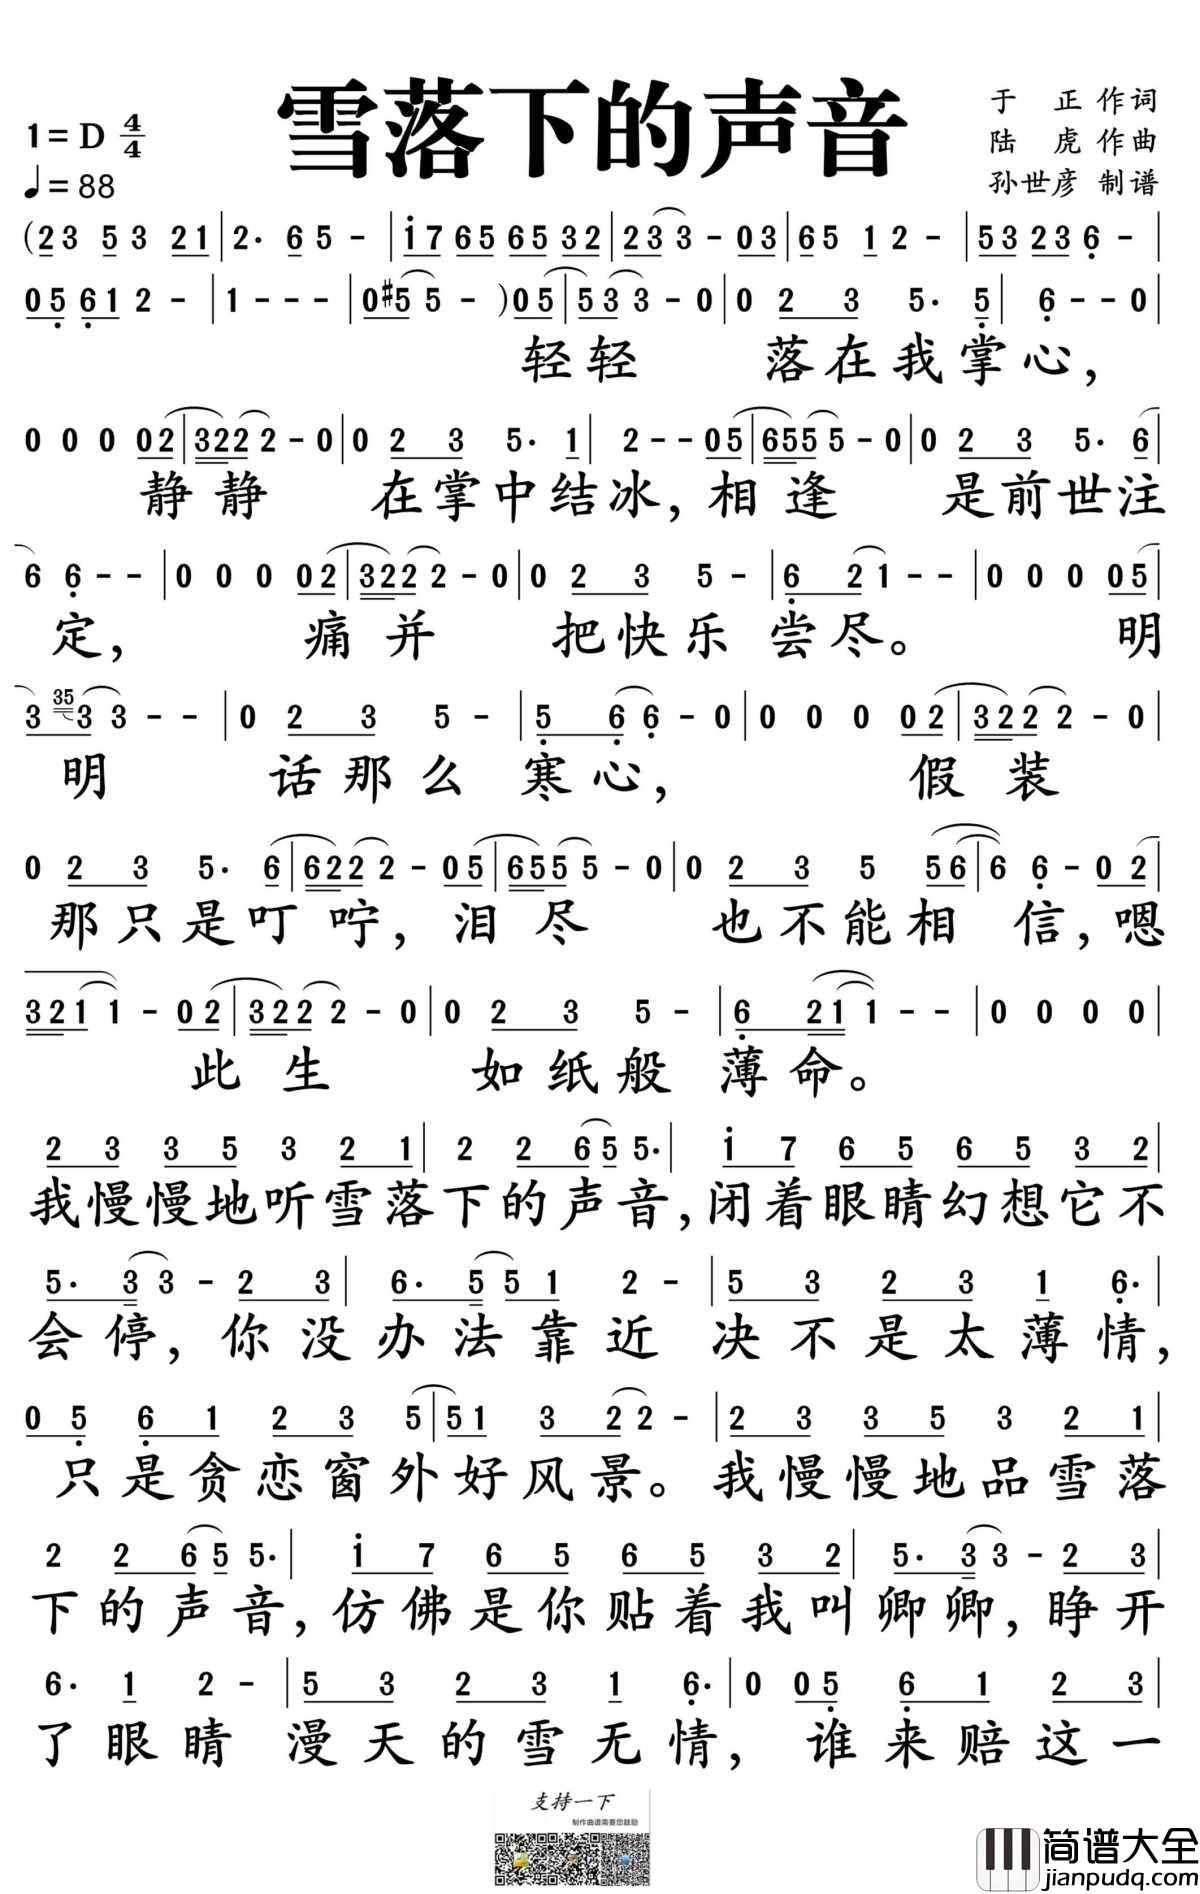 雪落下的声音
1=D 4/4
♩=88
于 正 作词
陆 虎 作曲
孙世彦 制谱
(23 53 21|2· 65-|i7 65 65 32|233-03|65 12-|53 236-|
05612-|1---|0#55-)05|533-0|0 2 3 5· 5|6--0|
轻轻 落在我掌心，
0 0 0 02|32222-0|0 2 3 5· 1|2--05|65555-0|0 2 3 5· 6|
静静 在掌中结冰，相逢 是前世注
6 6--|0 0 0 02|32222-0|0 2 3 5-|6 21--|0 0 0 05|
定， 痛并 把快乐尝尽。 明
3 35 3 3--|0 2 3 5-|5 66-0|0 0 0 02|32222-0|
明 话那么寒心， 假装
0 2 3 5· 6|62222-0 5|65555-0|0 2 3 5 56|6 6-02|
那只是叮咛，泪尽 也不能相信，嗯
3211-02|32222-0|0 2 3 5-|6 211--|0 0 0 0|
此生 如纸般薄命。
2 3 3 5 3 2 1|2 2 65 5·|i 7 6 5 6 5 3 2|
我慢慢地听雪落下的声音，闭着眼睛幻想它不
5· 3 3-2 3|6· 5 5 1 2-|5 3 2 3 1 6·|
会停，你没办法靠近 决不是太薄情，
0 5 6 1 2 3 5|51 3 22-|2 3 3 5 3 2 1|
只是贪恋窗外好风景。我慢慢地品雪落
2 2 65 5·|i 7 6 5 6 5 3 2|5· 3 3-2 3|
下的声音，仿佛是你贴着我叫卿卿，睁开
6· 1 2-|5 3 2 3 1 6·|0 05 6 1 2 3|
了眼睛 漫天的雪无情， 谁来赔这一
支持一下
制作曲谱需要您鼓励
简谱大全
jianpudq.com